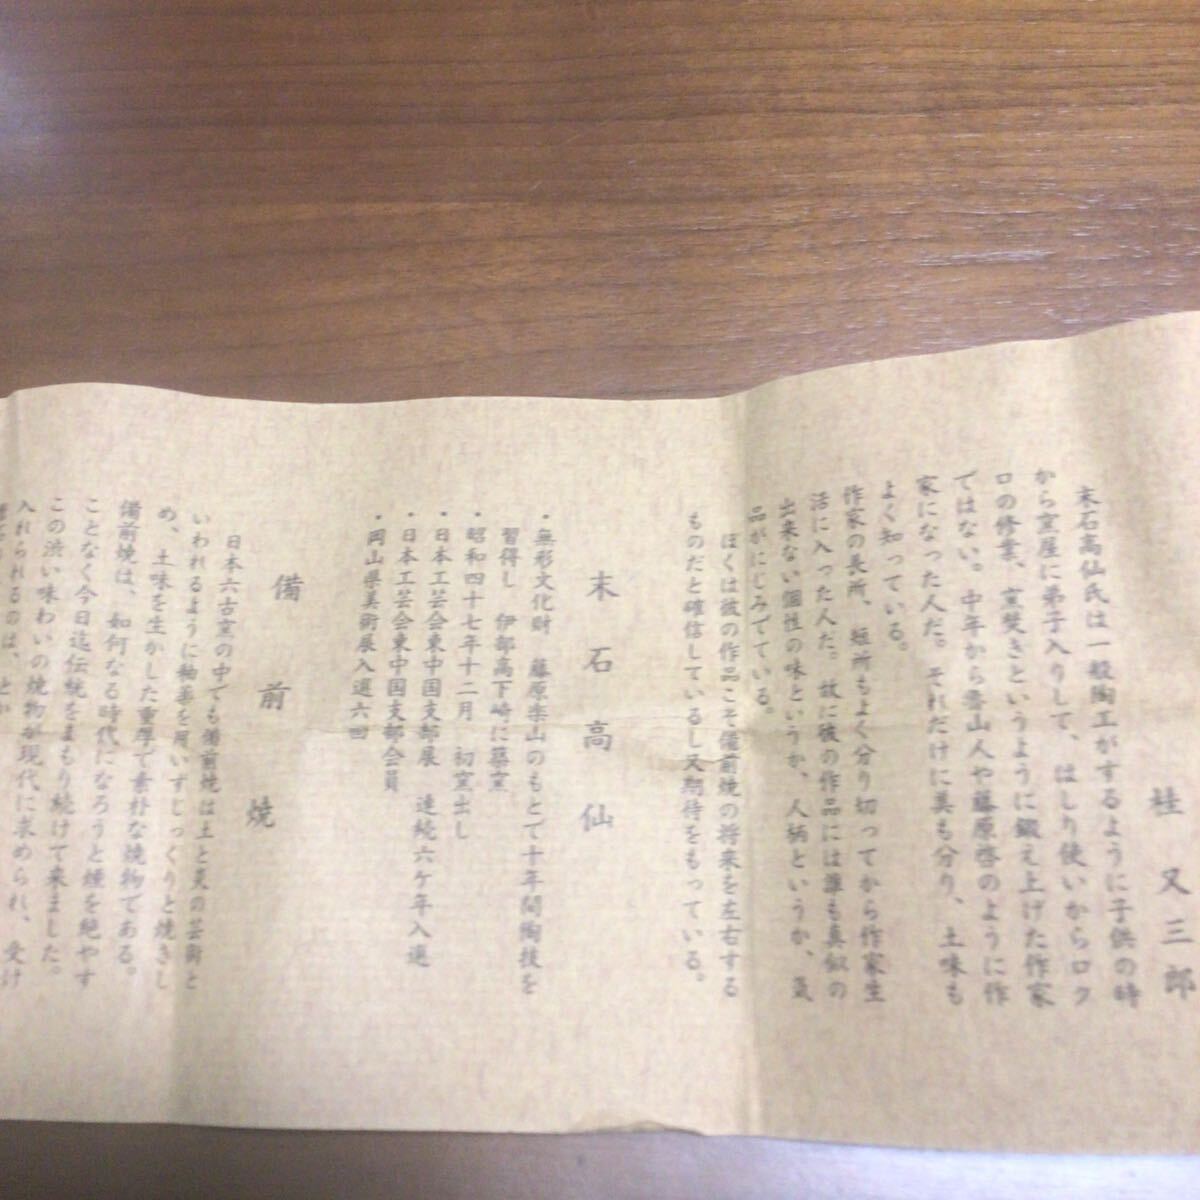 桂又三郎
末石高仙氏は一般陶工がするように子供の時
から窯屋に弟子入りして、はしり使いからロク
ロの修業、窯焚きというように鍛え上げた作家
ではない。中年から魯山人や藤原啓のように作
家になった人だ。それだけに美も分り、土味も
よく知っている。
作家の長所、短所もよく分り切ってから作家生
活に入った人だ。故に彼の作品には誰も真似の
出来ない個性の味というか、人柄というか、気
品がにじみでている。
ぼくは彼の作品こそ備前焼の将来を左右する
ものだと確信しているし又期待をもっている。
末石高仙
・無形文化財 藤原楽山のもとで十年間陶技を
習得し 伊部高下崎に築窯
・昭和四十七年十二月 初窯出し
・日本工芸会東中国支部展 連続六ケ年入選
・日本工芸会東中国支部会員
・岡山県美術展入選六回
備前焼
日本六古窯の中でも備前焼は土と炎の芸術と
いわれるように釉薬を用いずじっくりと焼きし
め、土味を生かした重厚で素朴な焼物である。
備前焼は、如何なる時代になろうと煙を絶やす
ことなく今日迄伝統をまもり続けて来ました。
この渋い味わいの焼物が現代に求められ、受け
入れられるのは、